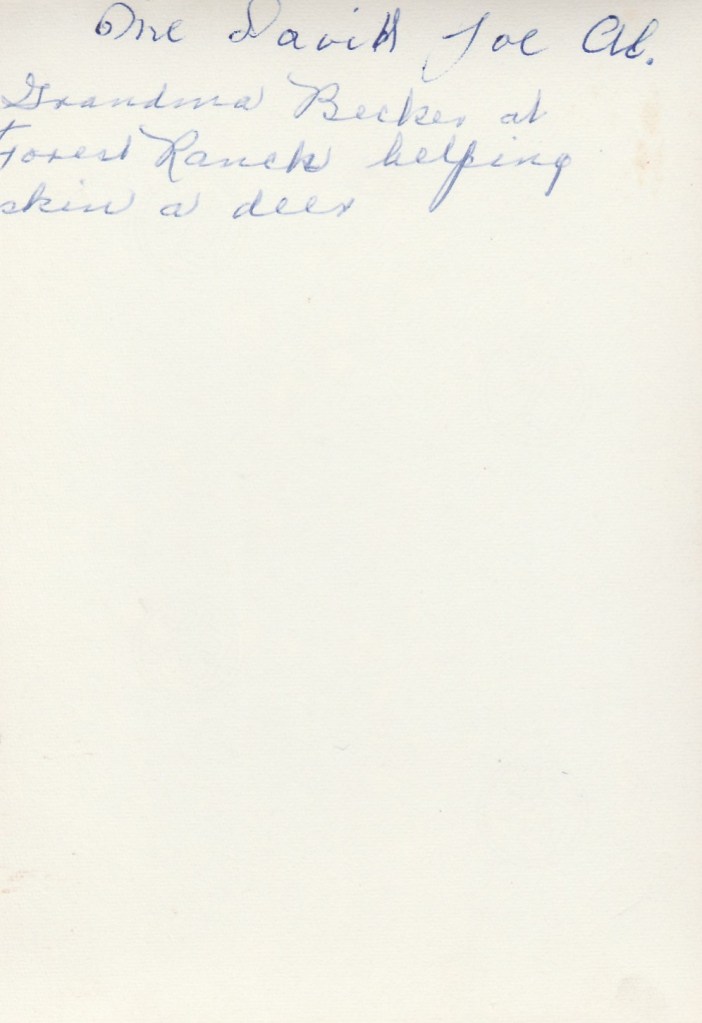 One David Joe Al.
Grandma Becker at
Forest Ranch helping
skin a deer